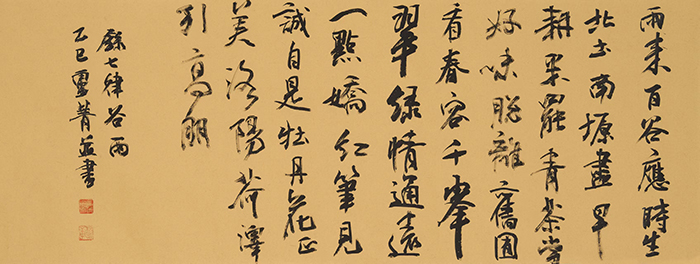 雨来百谷應時生
北土南塬盡早
耕采罷青茶嘗
好味脱離舊圃
看春容千峯
翠緑情通遠
一點嬌紅筆見
誠自是牡丹花正
美洛陽菏澤
引高朋
録七律谷雨
乙巳菁益書